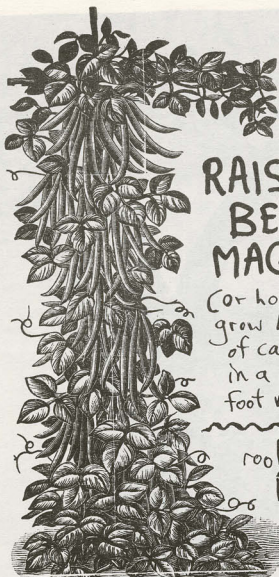 RAIS
BE
MAG
(or ho
grow
of ca
in a
foot
roo